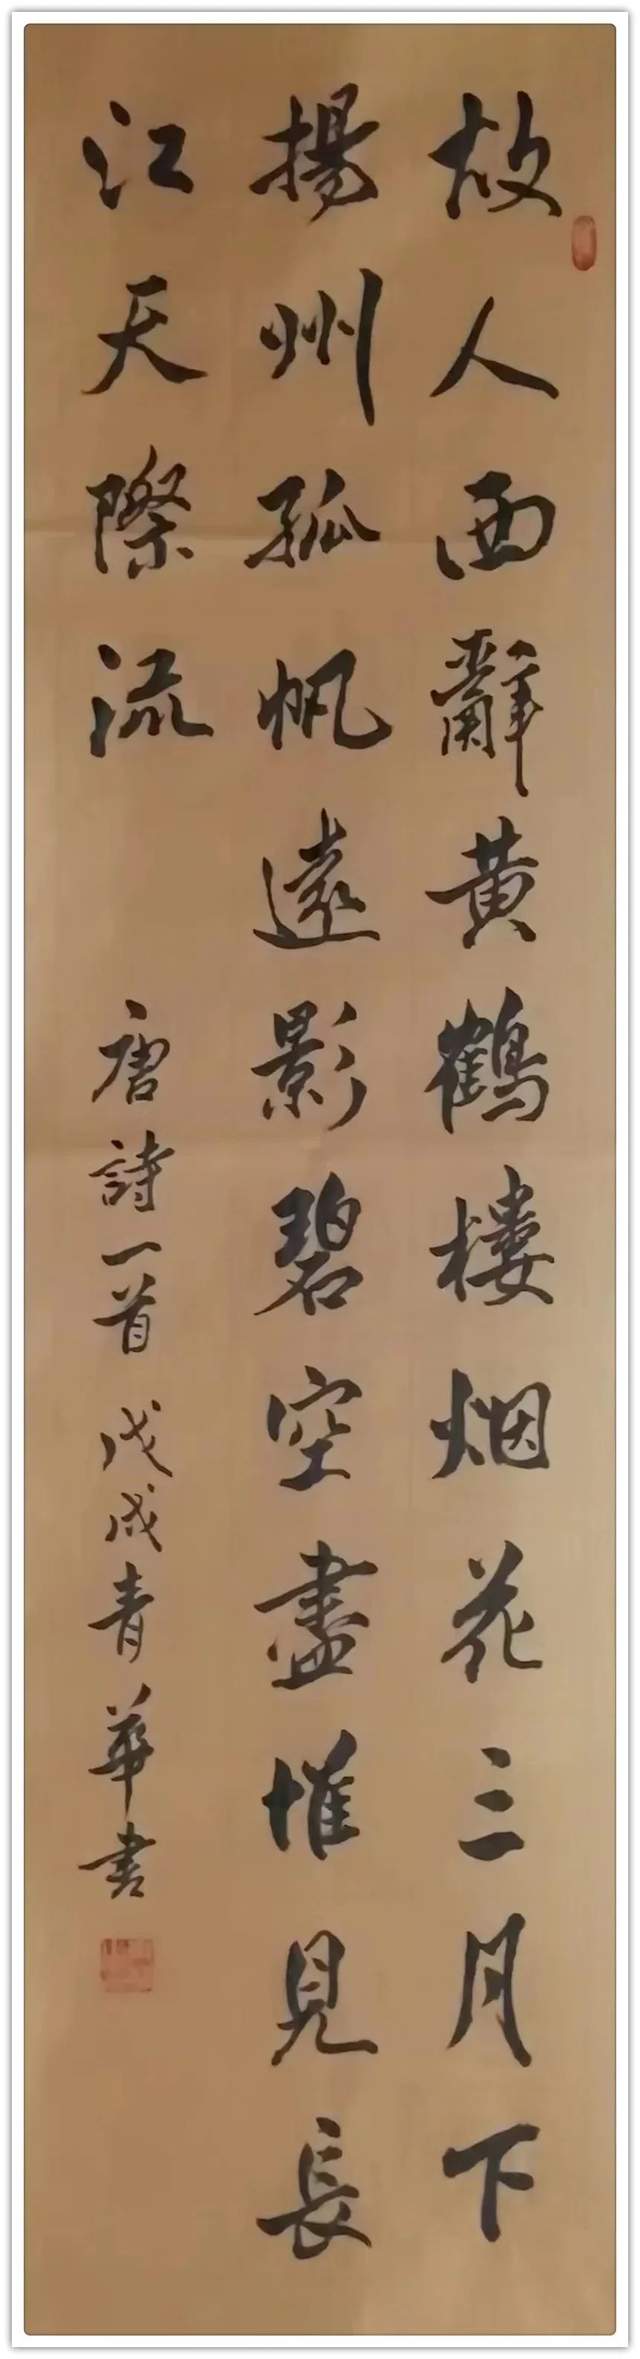 故人西辭黄鶴樓烟花三月下
揚州孤帆遠影碧空盡惟見長
江天際流
唐詩一首 戊戌青華書